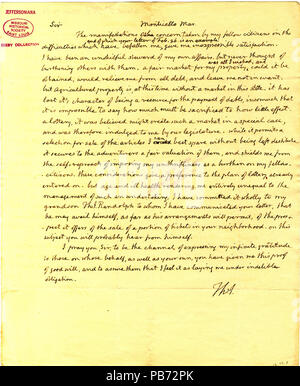 JEFFERSONIANA
MISSOURI HISTORICAL SOCIETY SAINT LOUIS
BIXBY COLLECTION
Sir Monticello Mar
The manifestations of the concern taken by my fellow citizens in the
and of which your letter of Feb. 26. is an example
difficulties which have befallen me, give me inexpressible satisfaction.
I have been an undisguised slave of my own affairs, but never thought of
burthening others with them. a fair market for my property, could it be
all I wished, and
obtained, would relieve me from all debt, and leave me not in want.
but agricultural property is at this time without a market in this state. it has
lost it's character of being a resource for the payment of debts, insomuch that
it is impossible to say how much must be sacrificed to how little effect.
a lottery, it was believed might create such a market in a special case,
and was therefore indulged to me by our legislature. while it permits a
selection for sale of the articles I could best spare, without being left destitute,
it secures to the adventurers a fair valuation of them, and shields me from
the self-reproach of my misfortunes as a burthen on my fellow-
citizens. these considerations the plan of lottery already
entered on. but age and ill health rendering me entirely unequal to the
management of such an undertaking, I have committed it wholly to my
grandson. Th: J. Randolph to whom I have communicated your letter, that
he may avail himself, as far as his arrangements will permit, of the pros-
pect it offers of the sale of a portion of tickets in your neighborhood. on this
subject you will probably hear from himself.
I pray you Sir, to be the channel of expressing my infinite gratitude
to those on whose behalf, as well as your own, you have given me this proof
of good will, and to assure them that I feel it as laying me under indelible
obligation.
Th:J.
alamy